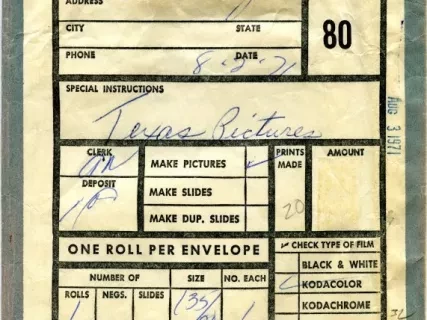 ADDRESS
CITY STATE
80
PHONE DATE
8-2-71
SPECIAL INSTRUCTIONS
Texas Pictures
AUG 3 1971
CLERK
MAKE PICTURES ✓
PRINTS MADE
AMOUNT
DEPOSIT
MAKE SLIDES
20
MAKE DUP. SLIDES
ONE ROLL PER ENVELOPE
✓ CHECK TYPE OF FILM
BLACK & WHITE
NUMBER OF SIZE NO. EACH
KODACOLOR
ROLLS NEGS. SLIDES
1 135 1
KODACHROME